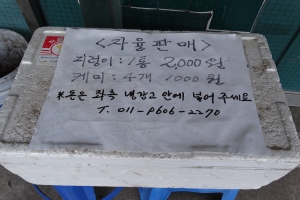 <자율판매>
지렁이 : 1통 2,000원
케미 : 4개 1000원
*돈은 좌측 냉장고 안에 넣어 주세요
T. 011-9606-2270